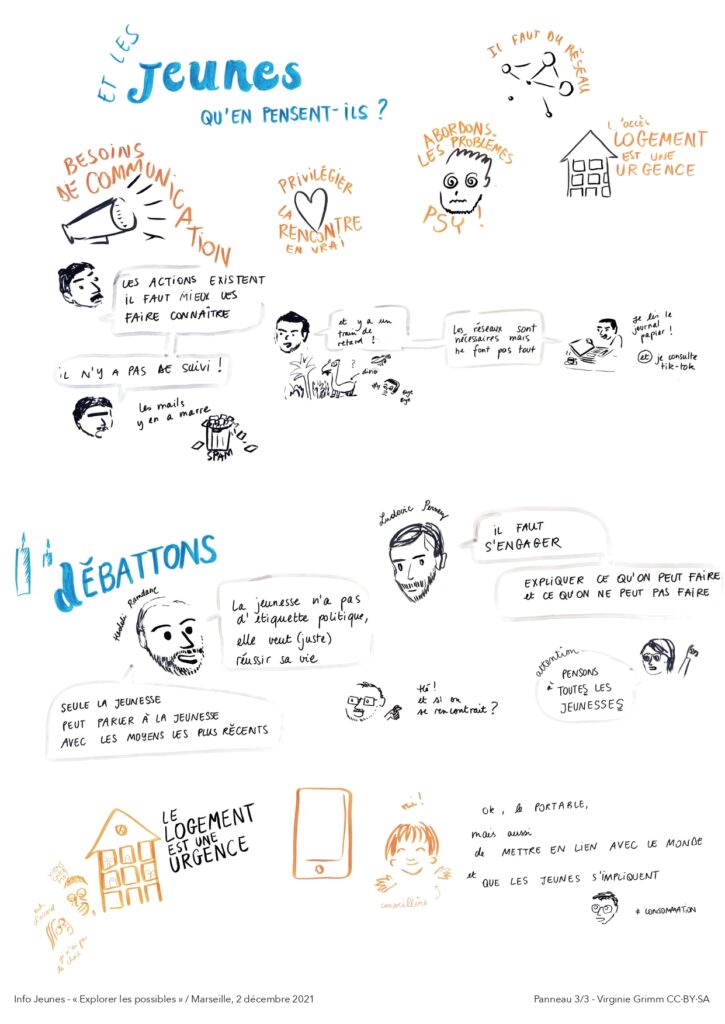 ET LES
Jeunes
QU'EN PENSENT-ILS ?
IL FAUT DU RÉSEAU
BESOINS
DE COMMUNICATION
PRIVILÉGIER
LA
RENCONTRE
EN VRAI
ABORDONS
LES PROBLÈMES
PSY !
L'ACCÈS
LOGEMENT
EST UNE
URGENCE
LES ACTIONS EXISTENT
IL FAUT MIEUX LES
FAIRE CONNAÎTRE
IL N'Y A PAS DE SUIVI !
Les mails
y en a marre
SPAM
et y a un
train de
retard !
?
dino
Les réseaux sont
nécessaires mais
ne font pas tout
Je lis le
journal
papier !
et je consulte
tik-tok
DÉBATTONS
Ramdane
La jeunesse n'a pas
d'étiquette politique,
elle veut (juste)
réussir sa vie
SEULE LA JEUNESSE
PEUT PARLER À LA JEUNESSE
AVEC LES MOYENS LES PLUS RÉCENTS
Ludovic Perney
IL FAUT
S'ENGAGER
EXPLIQUER CE QU'ON PEUT FAIRE
et CE QU'ON NE PEUT PAS FAIRE
Hé !
et si on
se rencontrait ?
attention
PENSONS
à TOUTES LES
JEUNESSES
LE
LOGEMENT
EST UNE
URGENCE
oui !
conseillère
OK, le PORTABLE,
mais aussi
de METTRE EN LIEN AVEC LE MONDE
et QUE LES JEUNES S'IMPLIQUENT
≠ CONSOMMATION
Info Jeunes - « Explorer les possibles » / Marseille, 2 décembre 2021
Panneau 3/3 - Virginie Grimm CC-BY-SA